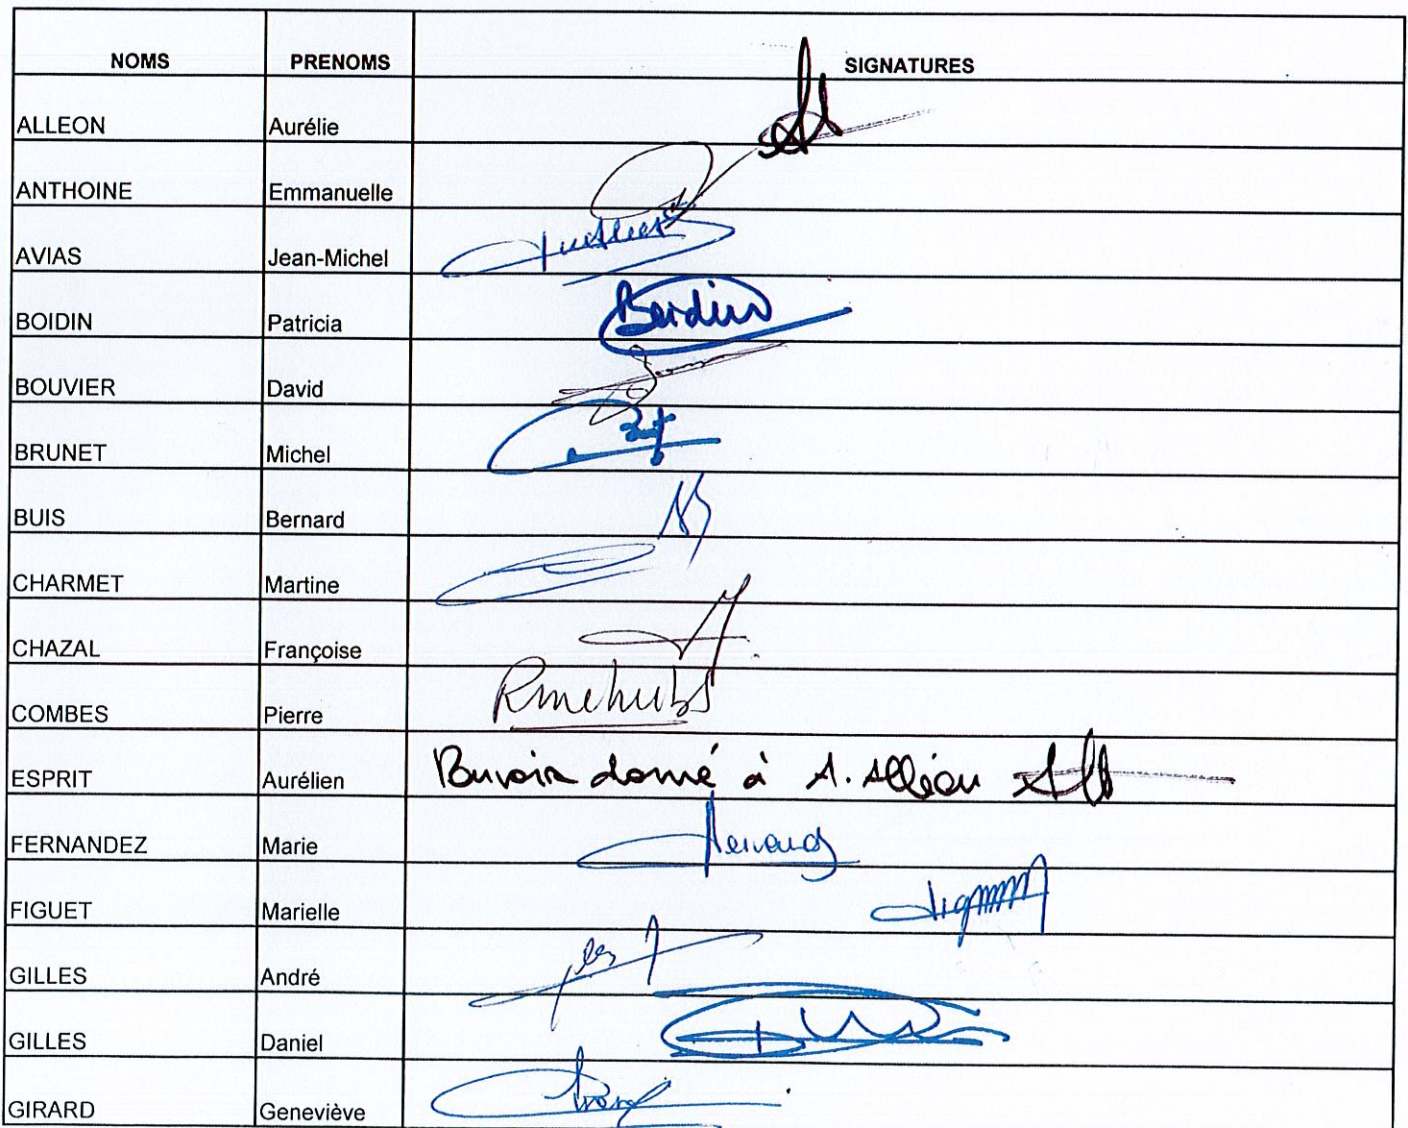 NOMS PRENOMS SIGNATURES
ALLEON Aurélie
ANTHOINE Emmanuelle
AVIAS Jean-Michel
BOIDIN Patricia Boidin
BOUVIER David
BRUNET Michel
BUIS Bernard
CHARMET Martine
CHAZAL Françoise
COMBES Pierre
ESPRIT Aurélien Pouvoir donné à A. Alléon
FERNANDEZ Marie
FIGUET Marielle
GILLES André
GILLES Daniel
GIRARD Geneviève